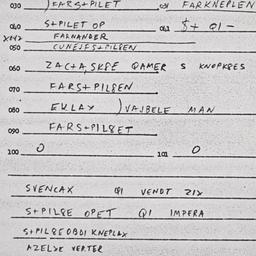 030 FARS+PILET 031 FARKNEPLEN
040 S+PILET OP 041 S+ 01-
FARNANDER
050 CUNEJES+PILSEN
060 ZAC+A, SKSE QAMER S KNOPKSES
070 FARS+ PILSEN
080 EKLAX ) VAJBELE MAN
090 FARS+PILSET
100 0 101 0
SVENCAX QI VENDT ZIX
S+PILSE OPET QI IMPERA
S+PILSEOBOI KNEPLAX
AZELSE VERTER